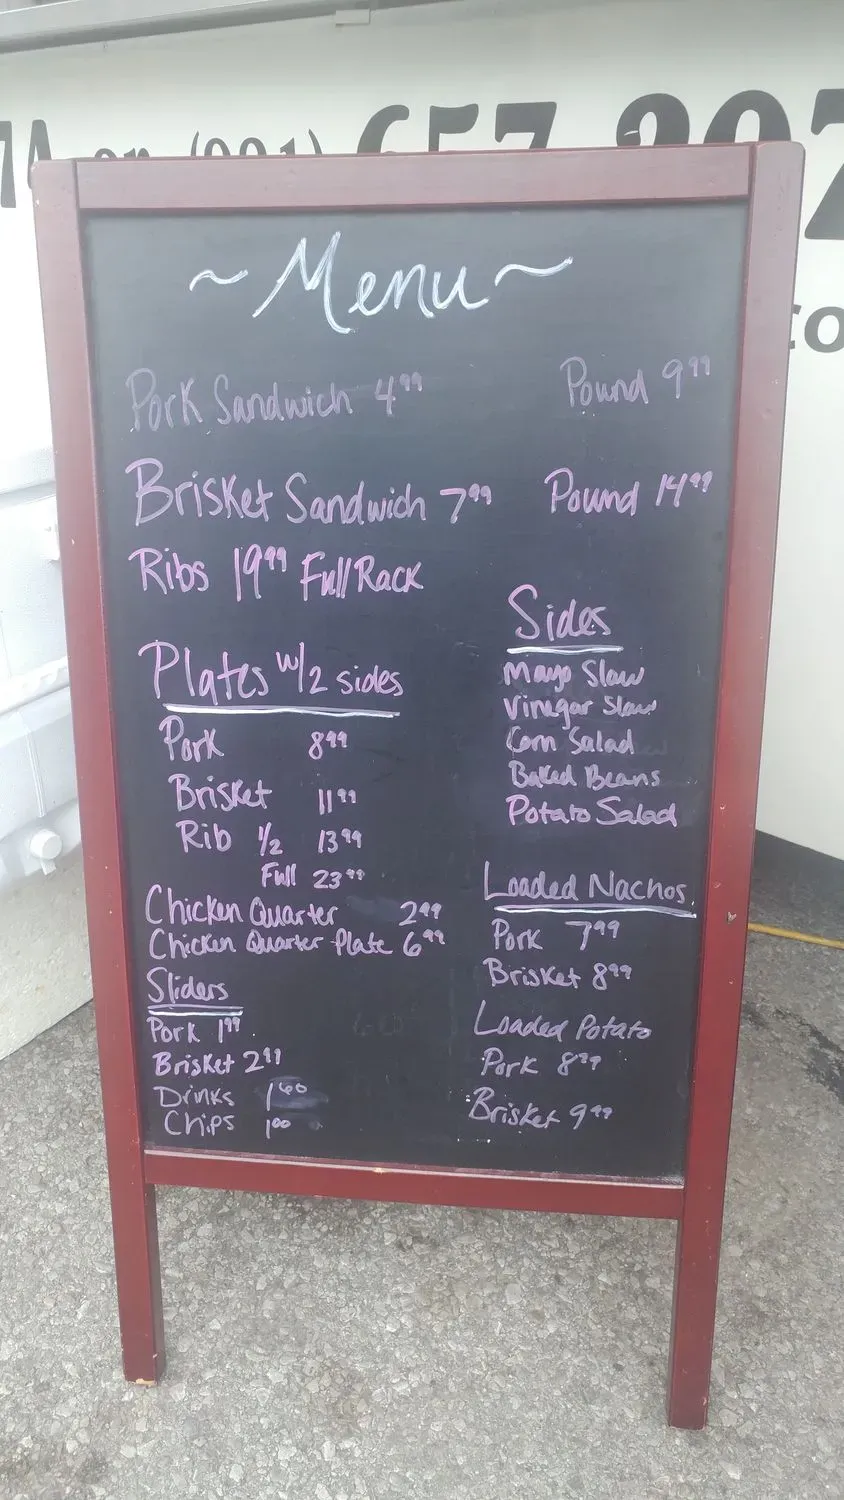 or (901) 657-207
~ Menu ~
Pork Sandwich 4.99 Pound 9.99
Brisket Sandwich 7.99 Pound 14.99
Ribs 19.99 Full Rack
Plates w/2 sides
Pork 8.99
Brisket 11.99
Rib 1/2 13.99
Full 23.99
Chicken Quarter 2.99
Chicken Quarter Plate 6.99
Sliders
Pork 1.99
Brisket 2.99
Drinks 1.00
Chips 1.00
Sides
Mayo Slaw
Vinegar Slaw
Corn Salad
Baked Beans
Potato Salad
Loaded Nachos
Pork 7.99
Brisket 8.99
Loaded Potato
Pork 8.99
Brisket 9.99